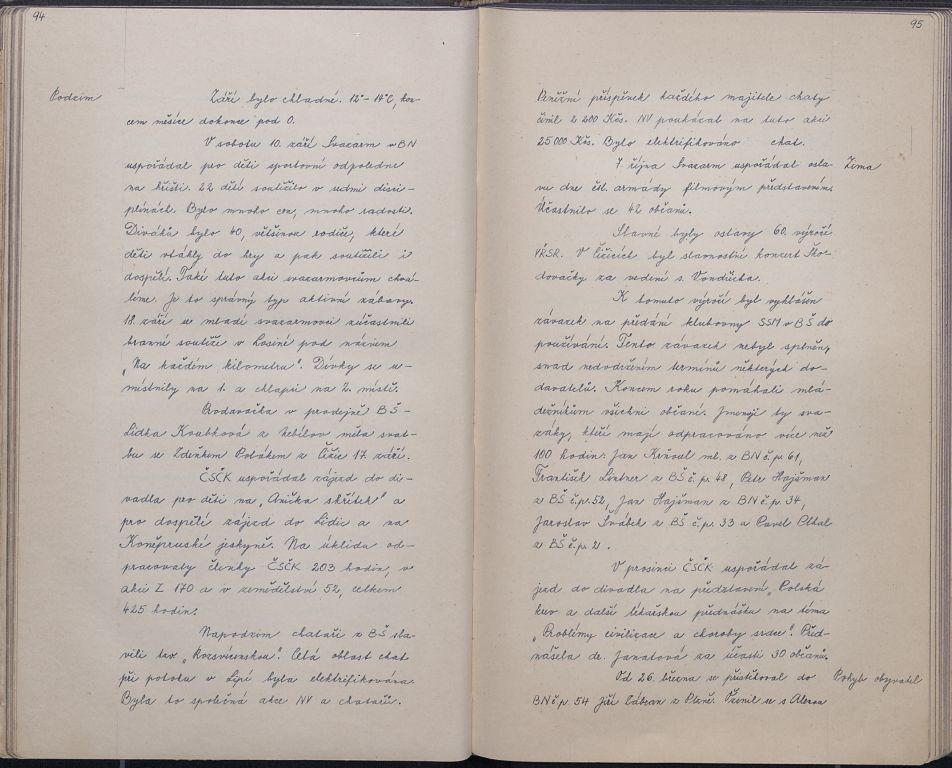 94
Podzim
Září bylo chladné. 12°-14°C kon-
cem měsíce dokonce pod 0.
V sobotu 10. září Svazarm v BN
uspořádal pro děti sportovní odpoledne
na hřišti. 22 dětí soutěžilo v sedmi disci-
plínách. Bylo mnoho cen, mnoho radosti.
Diváků bylo 40, většinou rodiče, které
děti vtáhly do hry a pak soutěžili i
dospělí. Také tuto akci svazarmovcům chvá-
líme. Je to správný typ aktivní zábavy.
18. září se mladí svazarmovci zúčastnili
branné soutěže v Losiné pod názvem
„Na každém kilometru". Dívky se u-
místnily na 1. a chlapci na 2. místě.
Prodavačka v prodejně BŠ -
Lidka Koubková z Nebílov měla svat-
bu se Zdeňkem Polákem z Čižic 17. září.
ČSČK uspořádal zájezd do di-
vadla pro děti na „Anička skřítek" a
pro dospělé zájezd do Lidic a na
Koněpruské jeskyně. Na úklidu od-
pracovaly členky ČSČK 203 hodin, v
akci Z 170 a v zemědělství 52, celkem
425 hodin.
Na podzim chataři z BŠ sla-
vili tzv. „Rozsvícenskou". Celá oblast chat
při potoku v Lipí byla elektrifikována.
Byla to společná akce NV a chatařů.
95
Peněžní příspěvek každého majitele chaty
činil 2 200 Kčs. NV poukázal na tuto akci
25 000 Kčs. Bylo elektrifikováno chat.
7. října Svazarm uspořádal osla-
Zima
vu dne čsl. armády filmovým představením.
Účastnilo se 42 občanů.
Slavné byly oslavy 60. výročí
VŘSR. V Čižicích byl slavnostní koncert Ško-
dovačky za vedení s. Vondřicha.
K tomuto výročí byl vyhlášen
závazek na předání klubovny SSM v BŠ do
používání. Tento závazek nebyl splněn,
snad nedodržením termínů některých do-
davatelů. Koncem roku pomáhali mlá-
dežníkům všichni občané. Jmenuji ty sva-
záky, kteří mají odpracováno více než
100 hodin: Jan ml. z BN č.p. 61,
František Lindner z BŠ č.p. 48, Petr Hajšman
z BŠ č.p. 52, Jan Hajšman z BN č.p. 34,
Jaroslav Šválek z BŠ č.p. 33 a Pavel
z BŠ č.p. 2.
V prosinci ČSČK uspořádal zá-
jezd do divadla na představení „Polská
krev a další lékařskou přednášku na téma
„Problémy civilizace a choroby srdce". Před-
nášela dr. Janatová za účasti 30 občanů.
Od 26. března se přistěhoval do
Pohyb obyvatel
BN č.p. 54 Jiří z Plzně. Oženil se s Alenou